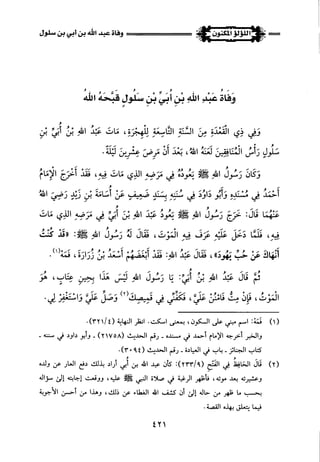 اللؤلؤ المكنون
وفاة عبد الله بن أبي بن سلول
وَفَاةُ عَبْدِ اللهِ بْنِ أُبَيِّ بْنِ سَلُولٍ قَبَّحَهُ اللهُ
وَفِي ذِي القَعْدَةِ مِنَ السَّنَةِ التَّاسِعَةِ لِلْهِجْرَةِ، مَاتَ عَبْدُ اللهِ بْنُ أُبَيِّ بْنِ
سَلُولٍ رَأْسُ المُنَافِقِينَ لَعَنَهُ اللهُ، بَعْدَ أَنْ مَرِضَ عِشْرِينَ لَيْلَةً.
وَكَانَ رَسُولُ اللهِ ﷺ يَعُودُهُ فِي مَرَضِهِ الذِي مَاتَ فِيهِ، فَقَدْ أَخْرَجَ الإِمَامُ
أَحْمَدُ فِي مُسْنَدِهِ وَأَبُو دَاوُدَ فِي سُنَنِهِ بِسَنَدٍ حَسَنٍ عَنْ أُسَامَةَ بْنِ زَيْدٍ رَضِيَ اللهُ
عَنْهُمَا قَالَ: خَرَجَ رَسُولُ اللهِ ﷺ يَعُودُ عَبْدَ اللهِ بْنَ أُبَيٍّ فِي مَرَضِهِ الذِي مَاتَ
فِيهِ، فَلَمَّا دَخَلَ عَلَيْهِ عَرَفَ فِيهِ المَوْتَ، فَقَالَ لَهُ رَسُولُ اللهِ ﷺ: «قَدْ كُنْتُ
أَنْهَاكَ عَنْ حُبِّ يَهُودَ»، فَقَالَ عَبْدُ اللهِ: فَقَدْ أَبْغَضَهُمْ أَسْعَدُ بْنُ زُرَارَةَ، فَمَهْ(١).
ثُمَّ قَالَ عَبْدُ اللهِ بْنُ أُبَيٍّ: يَا رَسُولَ اللهِ لَيْسَ هَذَا بِحِينِ عِتَابٍ، هُوَ
المَوْتُ، فَإِنْ مِتُّ فَامْنُنْ عَلَيَّ، فَكَفِّنِّي فِي قَمِيصِكَ(٢) وَصَلِّ عَلَيَّ وَاسْتَغْفِرْ لِي.
(١) فمه: اسم فعل مبني على السكون، بمعنى اسكت. انظر النهاية (٣٢١/٤).
والخبر أخرجه الإمام أحمد في مسنده - رقم الحديث (٢١٧٥٨) - وأبو داود في سننه -
كتاب الجنائز - باب في العيادة - رقم الحديث (٣٠٩٤).
(٢) قال الحافظ في الفتح (٢٣٣/٩): كان عبد الله بن أبي أراد بذلك دفع العار عن ولده
وعشيرته بعد موته، فأظهر الرغبة في صلاة النبي ﷺ عليه، ووقعت إجابته إلى سؤاله
بحسب ما ظهر من حاله إلى أن كشف الله الغطاء عن ذلك، وهذا من أحسن الأجوبة
فيما يتعلق بهذه القصة.
٤٢١